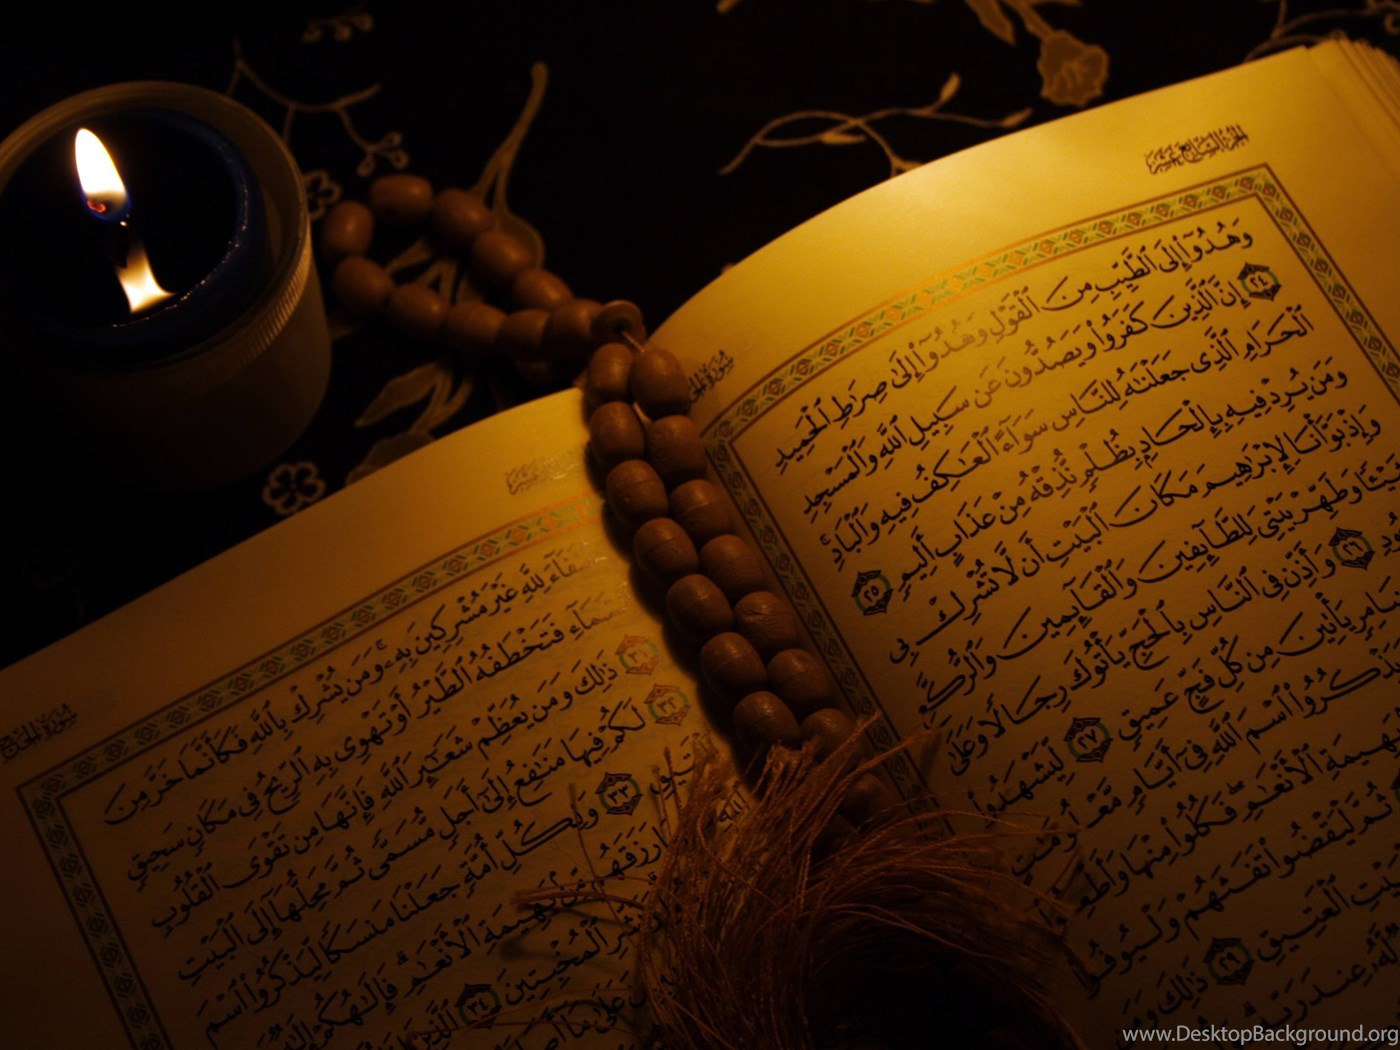 الجزء السابع عشر
سورة الحج
وَهُدُوٓا۟ إِلَى ٱلطَّيِّبِ مِنَ ٱلْقَوْلِ وَهُدُوٓا۟ إِلَىٰ صِرَٰطِ ٱلْحَمِيدِ
٢٤ إِنَّ ٱلَّذِينَ كَفَرُوا۟ وَيَصُدُّونَ عَن سَبِيلِ ٱللَّهِ وَٱلْمَسْجِدِ
ٱلْحَرَامِ ٱلَّذِى جَعَلْنَٰهُ لِلنَّاسِ سَوَآءً ٱلْعَٰكِفُ فِيهِ وَٱلْبَادِ
وَمَن يُرِدْ فِيهِ بِإِلْحَادٍۭ بِظُلْمٍ نُّذِقْهُ مِنْ عَذَابٍ أَلِيمٍ ٢٥
وَإِذْ بَوَّأْنَا لِإِبْرَٰهِيمَ مَكَانَ ٱلْبَيْتِ أَن لَّا تُشْرِكْ بِى
وَطَهِّرْ بَيْتِىَ لِلطَّآئِفِينَ وَٱلْقَآئِمِينَ وَٱلرُّكَّعِ
٢٦ وَأَذِّن فِى ٱلنَّاسِ بِٱلْحَجِّ يَأْتُوكَ رِجَالًا وَعَلَىٰ
يَأْتِينَ مِن كُلِّ فَجٍّ عَمِيقٍ ٢٧ لِّيَشْهَدُوا۟
ٱسْمَ ٱللَّهِ فِىٓ أَيَّامٍ
ٱلْأَنْعَٰمِ فَكُلُوا۟ مِنْهَا وَأَطْعِمُوا۟
لْيَقْضُوا۟ تَفَثَهُمْ وَلْيُوفُوا۟
ٱلْعَتِيقِ ٢٩ ذَٰلِكَ وَمَن
عِندَ رَبِّهِ
سورة الحج
لِلَّهِ غَيْرَ مُشْرِكِينَ بِهِۦ وَمَن يُشْرِكْ بِٱللَّهِ فَكَأَنَّمَا خَرَّ مِنَ
فَتَخْطَفُهُ ٱلطَّيْرُ أَوْ تَهْوِى بِهِ ٱلرِّيحُ فِى مَكَانٍ سَحِيقٍ
٣١ ذَٰلِكَ وَمَن يُعَظِّمْ شَعَٰٓئِرَ ٱللَّهِ فَإِنَّهَا مِن تَقْوَى ٱلْقُلُوبِ
٣٢ لَكُمْ فِيهَا مَنَٰفِعُ إِلَىٰٓ أَجَلٍ مُّسَمًّى ثُمَّ مَحِلُّهَآ إِلَى ٱلْبَيْتِ
٣٣ وَلِكُلِّ أُمَّةٍ جَعَلْنَا مَنسَكًا لِّيَذْكُرُوا۟ ٱسْمَ
رَزَقَهُم مِّنۢ بَهِيمَةِ ٱلْأَنْعَٰمِ فَإِلَٰهُكُمْ إِلَٰهٌ
ٱلْمُخْبِتِينَ ٣٤ ٱلَّذِينَ
عَلَىٰ مَآ
www.DesktopBackground.org